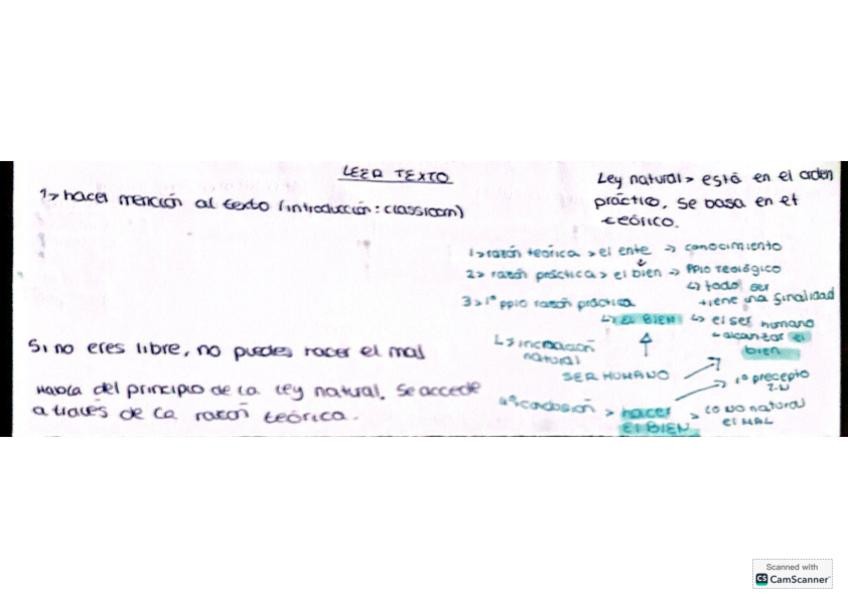 LEER TEXTO
1> hacer mención al texto (introducción: classroom)
Ley natural > está en el orden
práctico. Se basa en el
teórico.
1> razón teórica > el ente → conocimiento
2> razón práctica > el bien → PPIO Teológico
↳ todo ser
tiene una finalidad
3> 1º ppio razón práctica
↳ EL BIEN
↳ el ser humano
alcanzar el
bien
↳ inclinación
natural
SER HUMANO
1º precepto
4º conclusión > hacer
EL BIEN
> lo NO natural
el MAL
Si no eres libre, no puedes hacer el mal
Habla del principio de la ley natural. Se accede
a través de la razón teórica.
Scanned with
CS CamScanner